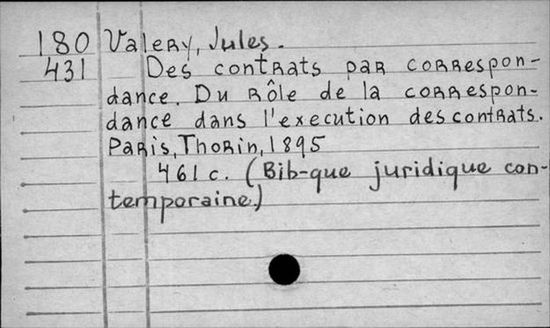 180 Valery, Jules.
431 Des contrats par correspon-
dance. Du rôle de la correspon-
dance dans l'execution des contrats.
Paris, Thorin, 1895
461 c. (Bib-que juridique con-
temporaine)